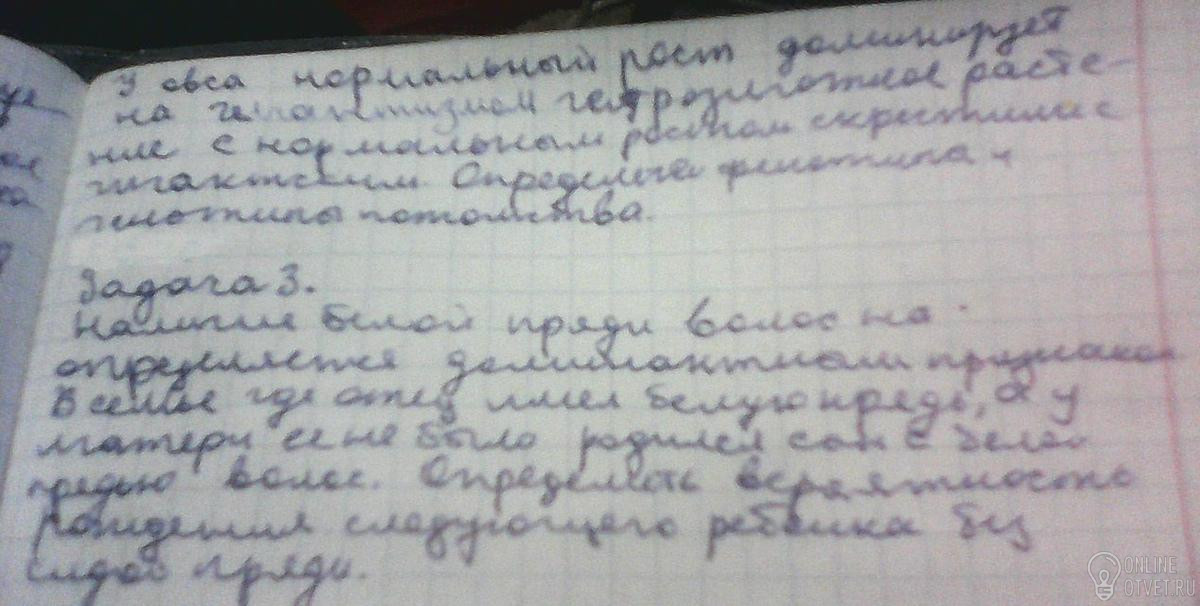 У овса нормальный рост доминирует
на гигантизмом гетрозиготное расте-
ние с нормальным ростом скрестили с
гигантским. Определите фенотипа и
генотипы потомства.
Задача 3.
Наличие белой пряди волос на
определяется доминантным признаком
В семье где отец имел белую прядь, а у
матери ее не было родился сын с белой
прядью волос. Определить вероятность
рождения следующего ребенка без
пряди.
ONLINE
OTVET.RU